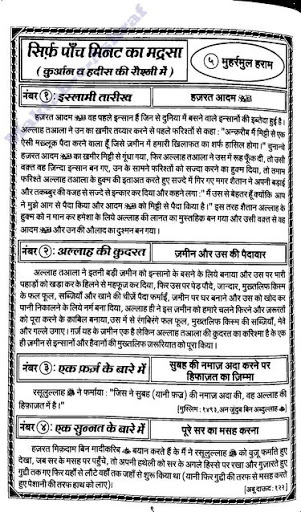 सिर्फ़ पाँच मिनट का मद्रसा
( कुर्आन व हदीस की रौश्नी में )
५ मुहर्रमुल हराम
नंबर १: इस्लामी तारीख हज़रत आदम
हज़रत आदम वह पहले इन्सान हैं जिन से दुनिया में बसने वाले इन्सानों की इब्तेदा हुई है।
अल्लाह तआला ने उन का खमीर तय्यार करने से पहले फरिश्तों से कहा : "अन्क़रीब मैं मिट्टी से एक
ऐसी मख़्लूक़ पैदा करने वाला हूँ जिसे ज़मीन में हमारी खिलाफत का शर्फ हासिल होगा।" चुनान्चे
हज़रत आदम का खमीर मिट्टी से गूंधा गया, फिर अल्लाह तआला ने उस में रूह फूँक दी, तो उसी
वक़्त वह जिन्दा इन्सान बन गए, उन के सामने फरिश्तों को सज्दा करने का हुक्म दिया, तो तमाम
फरिश्ते अल्लाह तआला के हुक्म की इताअत करते हुए सज्दे में गिर गए मगर शैतान ने अपनी बड़ाई
और तकब्बुर की वजह से सज्दे से इन्कार कर दिया और कहने लगा : " मैं उस से बेहतर हूँ क्योंकि आप
ने मुझे आग से पैदा किया और आदम को मिट्टी से पैदा किया है।" इस तरह शैतान अल्लाह के
हुक्म को न मान कर हमेशा के लिये अल्लाह की लानत का मुस्तहिक़ बन गया और उसी वक्त से वह
आदम और उन की औलाद का दुश्मन बन गया।
नंबर २: अल्लाह की कुदरत ज़मीन और उस की पैदावार
अल्लाह तआला ने इतनी बड़ी ज़मीन को इन्सानों के बसने के लिये बनाया और उस पर भारी
पहाड़ों को खड़ा कर के हिलने से महफूज़ कर दिया, फिर उस पर पेड़ पौदे, जान्दार, मुख्तलिफ किस्म
के फल फूल, सब्ज़ियाँ और खाने की चीज़ें पैदा फर्माई, ज़मीन पर घर बनाने और उस को खोद कर
पानी निकालने के लिये नर्म बना दिया, अल्लाह ही ने इस ज़मीन को हमारे चलने फिरने और ज़रूरतों
को पूरा करने के क़ाबिल बनाया, उस में से रंगबिरंगे फल फूल, मुख्तलिफ किस्म की सब्ज़ियाँ, मेवे
और गल्ले उगाए। गर्ज़ यह के ज़मीन एक है लेकिन अल्लाह तआला की कुदरत का करिश्मा है के एक
ही ज़मीन से इन्सानों और हैवानों की मुख्तलिफ ज़रूरियात को पूरा किया।
नंबर ३: एक फ़र्ज़ के बारे में सुबह की नमाज़ अदा करने पर
हिफाज़त का ज़िम्मा
रसूलुल्लाह ने फर्माया : "जिस ने सुबह (यानी फज्र) की नमाज़ अदा की, वह अल्लाह की
हिफाज़त में है।" [मुस्लिम : १४९३, अन जुंदुब बिन अब्दुल्लाह]
नंबर ४: एक सुन्नत के बारे में पूरे सर का मसह करना
हज़रत मिक़दाम बिन मादीकरिब बयान करते हैं के मैं ने रसूलुल्लाह को वुज़ू फर्माते हुए
देखा, जब सर के मसह पर पहुँचे, तो अपनी हथेली को सर के अगले हिस्से पर रखा और गुज़ारते हुए
गुद्दी तक गए फिर यहाँ से लौटे वहाँ तक जहाँ से मसह शुरू किया था (यानी फिर गुद्दी की तरफ से मसह करते
हुए पेशानी की तरफ हाथ को लाए)। [अबू दाऊद : १२२]